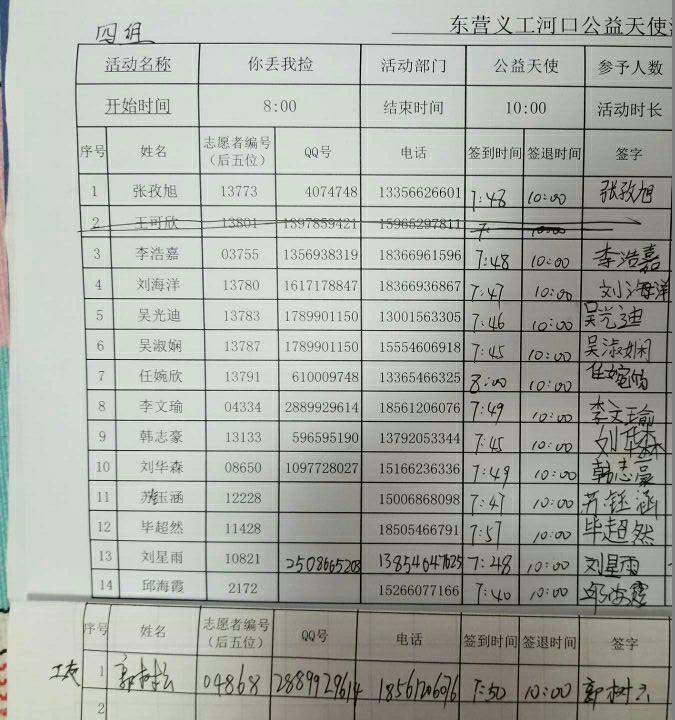 四组
东营义工河口公益天使
活动名称 你丢我捡 活动部门 公益天使 参予人数
开始时间 8:00 结束时间 10:00 活动时长
序号 姓名 志愿者编号（后五位） QQ号 电话 签到时间 签退时间 签字
1 张孜旭 13773 4074748 13356626601 7:48 10:00 张孜旭
2 王可欣 13801 1397859421 15965297811 7: 10:00
3 李浩嘉 03755 1356938319 18366961596 7:48 10:00 李浩嘉
4 刘海洋 13780 1617178847 18366936867 7:47 10:00 刘海洋
5 吴光迪 13783 1789901150 13001563305 7:46 10:00 吴光迪
6 吴淑娴 13787 1789901150 15554606918 7:45 10:00 吴淑娴
7 任婉欣 13791 610009748 13365466325 8:00 10:00
8 李文瑜 04334 2889929614 18561206076 7:49 10:00 李文瑜
9 韩志豪 13133 596595190 13792053344 7:45 10:00 刘华森
10 刘华森 08650 1097728027 15166236336 7:49 10:00 韩志豪
11 玉涵 12228 15006868098 7:47 10:00 苏钰涵
12 毕超然 11428 18505466791 7:57 10:00 毕超然
13 刘星雨 10821 2508665203 13854647625 7:48 10:00 刘星雨
14 邱海霞 2172 15266077166 7:40 10:00 邱海霞
序号 姓名 志愿者编号（后五位） QQ号 电话 签到时间 签退时间 签字
1 郭树 04868 2889929614 18561206076 7:50 10:00 郭树
2